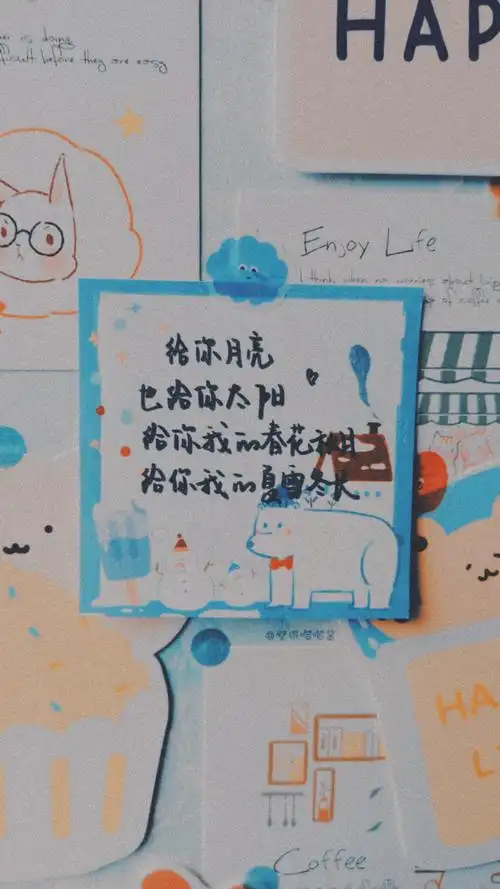 HAP
er is doing
difficult before they are easy
Enjoy Life
I think when no worries about
of coffee
给你月亮
也给你太阳
给你我的春花秋日
给你我的夏雪冬长
HA
L
Coffee